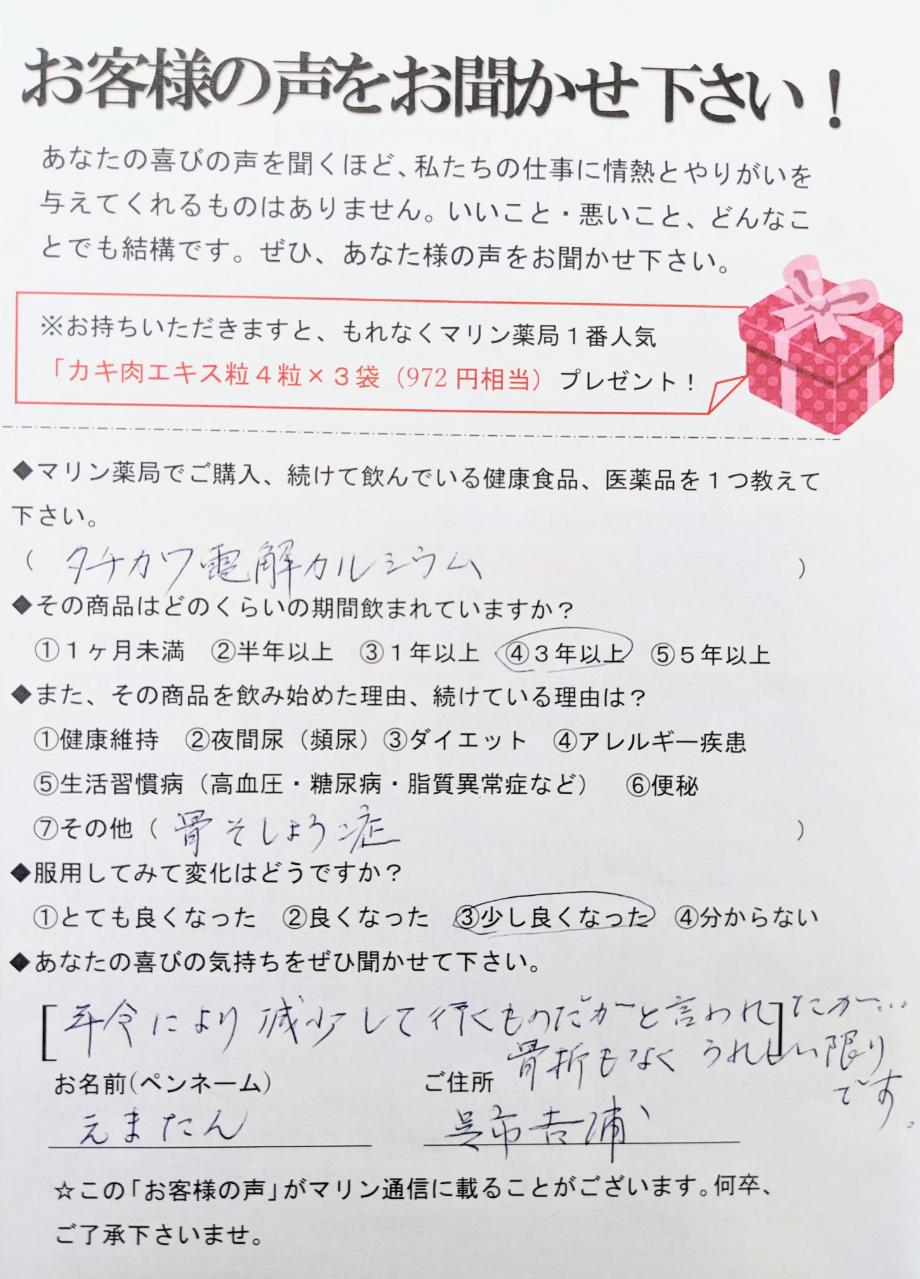 お客様の声をお聞かせ下さい！
あなたの喜びの声を聞くほど、私たちの仕事に情熱とやりがいを
与えてくれるものはありません。いいこと・悪いこと、どんなこ
とでも結構です。ぜひ、あなた様の声をお聞かせ下さい。
※お持ちいただきますと、もれなくマリン薬局１番人気
「カキ肉エキス粒４粒×３袋（972円相当）プレゼント！
◆マリン薬局でご購入、続けて飲んでいる健康食品、医薬品を１つ教えて
下さい。
（ タチカワ電解カルシウム ）
◆その商品はどのくらいの期間飲まれていますか？
①１ヶ月未満 ②半年以上 ③１年以上 ④３年以上 ⑤５年以上
◆また、その商品を飲み始めた理由、続けている理由は？
①健康維持 ②夜間尿（頻尿）③ダイエット ④アレルギー疾患
⑤生活習慣病（高血圧・糖尿病・脂質異常症など） ⑥便秘
⑦その他（ 骨そしょう症 ）
◆服用してみて変化はどうですか？
①とても良くなった ②良くなった ③少し良くなった ④分からない
◆あなたの喜びの気持ちをぜひ聞かせて下さい。
[年令により減少して行くものだがと言われ]たが…
骨折もなくうれしい限り
です。
お名前（ペンネーム） ご住所
えまたん 呉市吉浦
☆この「お客様の声」がマリン通信に載ることがございます。何卒、
ご了承下さいませ。